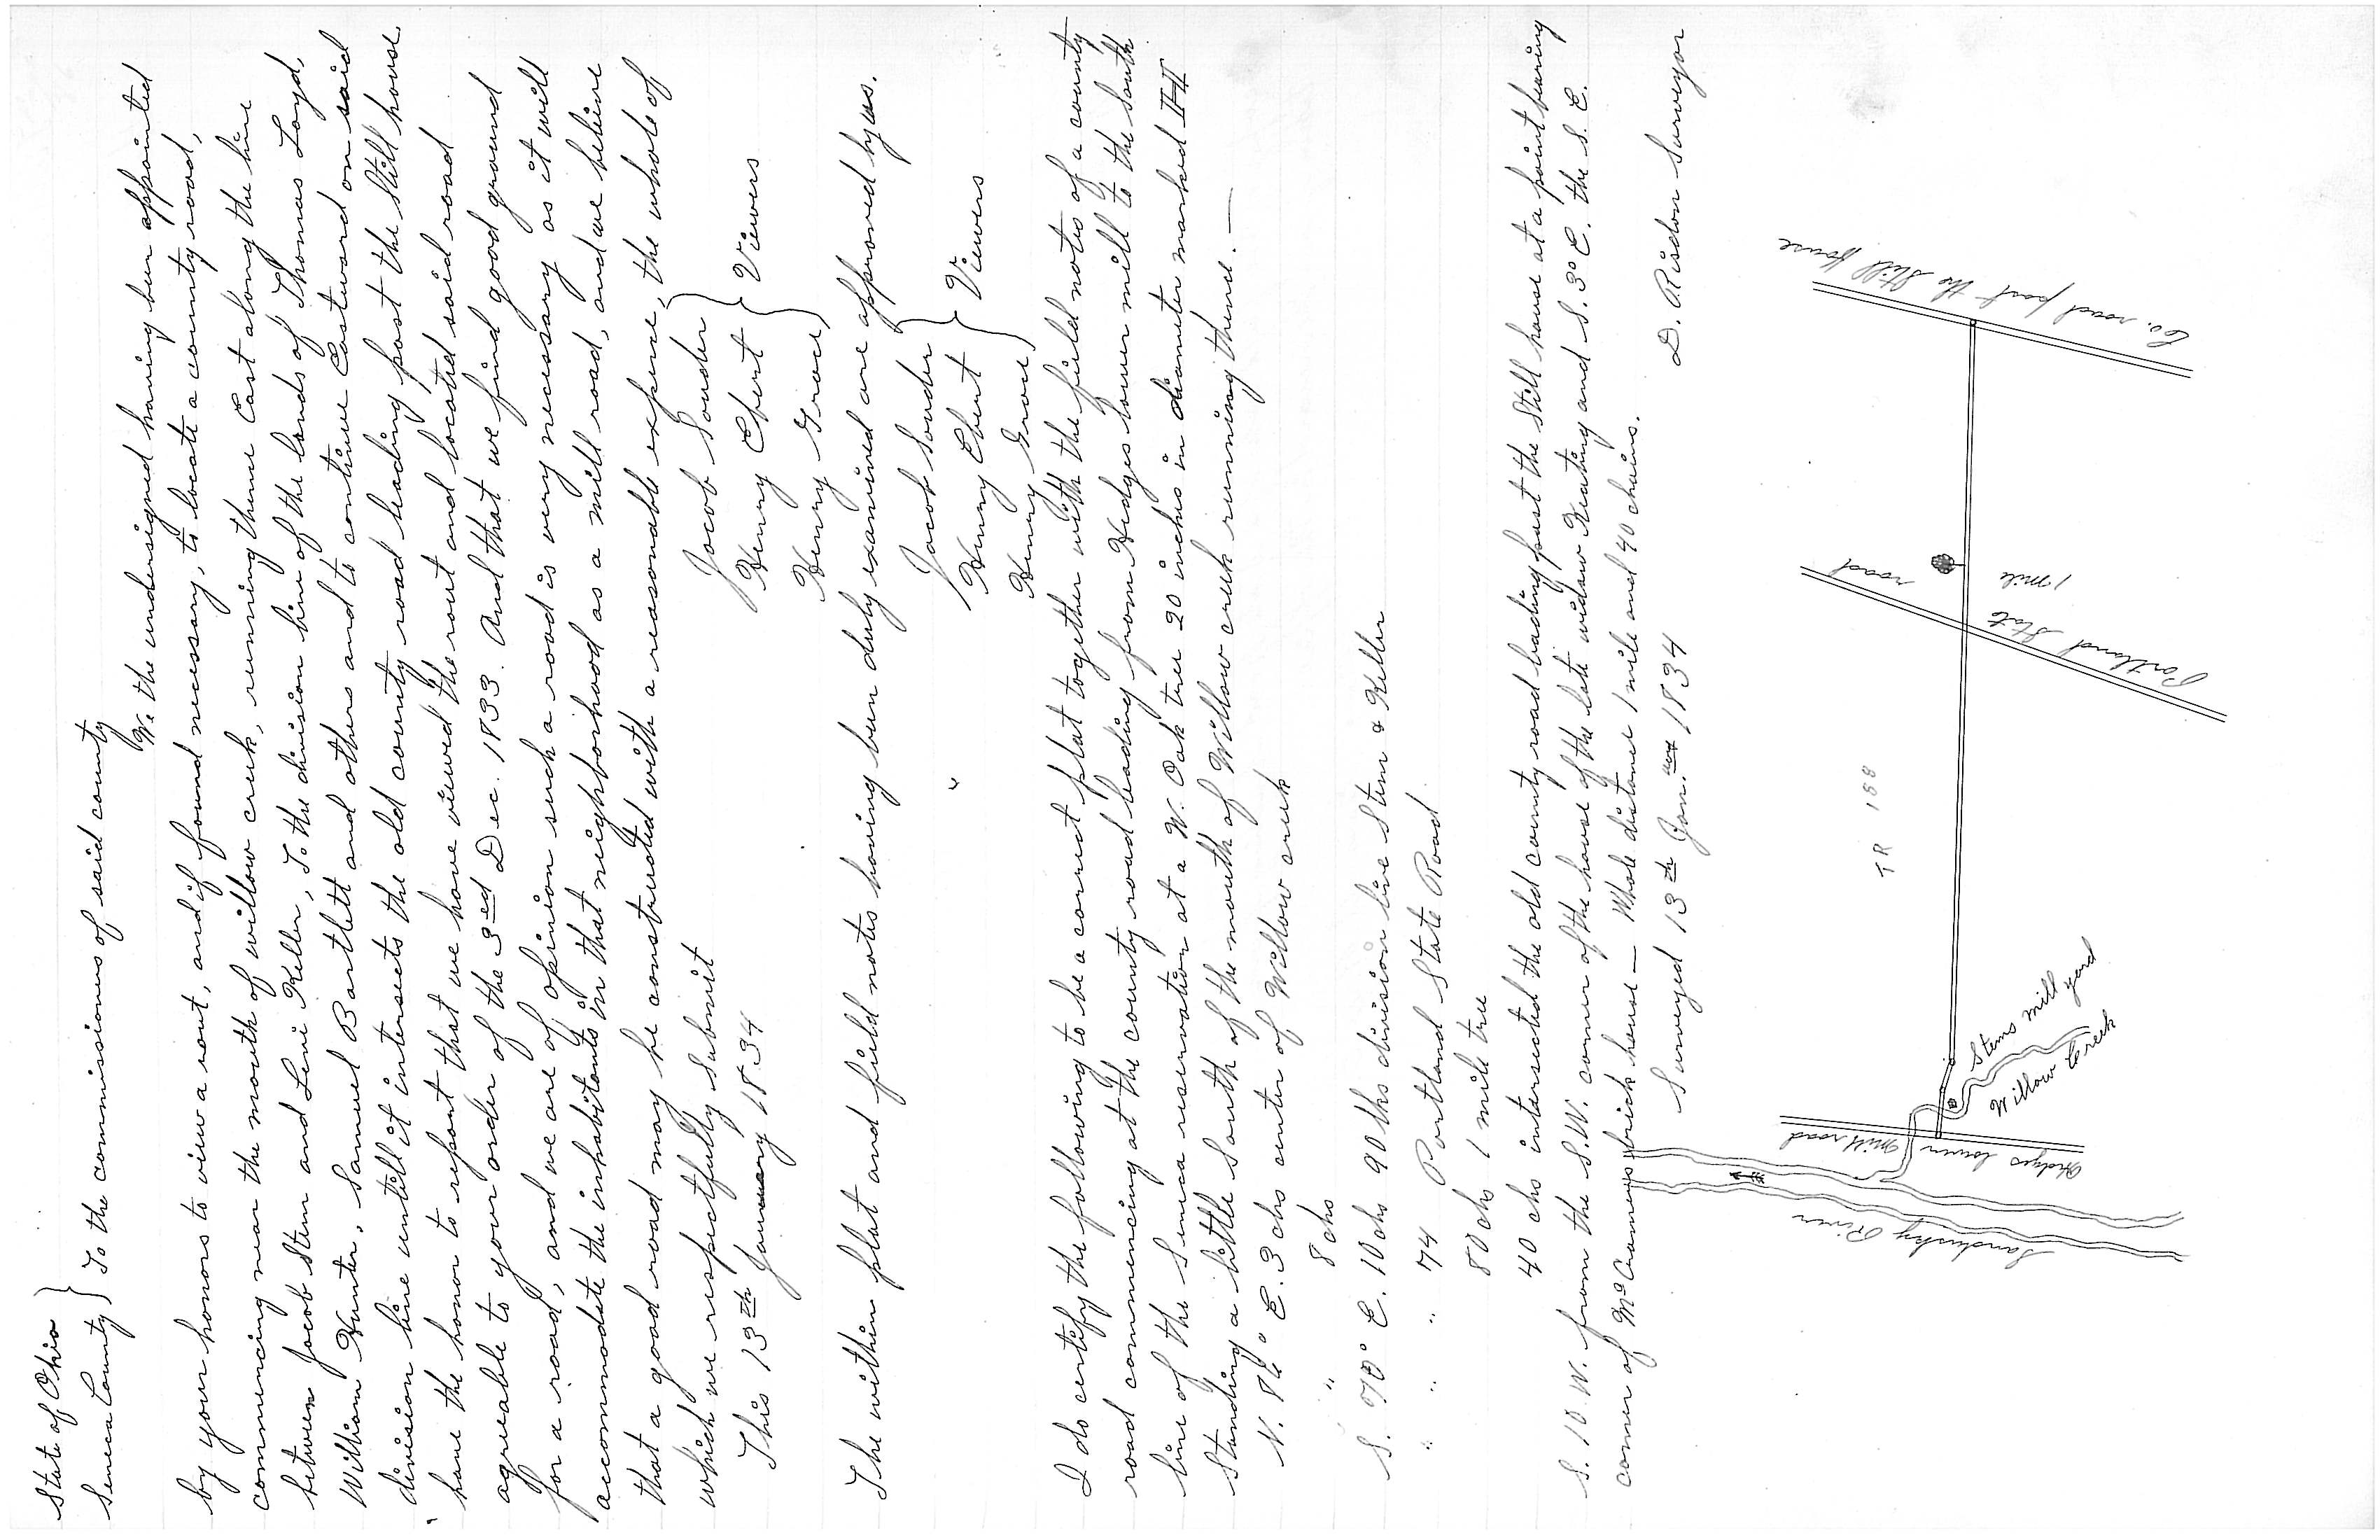 State of Ohio
Seneca County } To the commissioners of said county
We the undersigned having been appointed
by your honors to view a rout, and if found necessary, to locate a county road,
commencing near the mouth of willow creek, running thence East along the line
between Jacob Stem and Levi Keller, To the division line of the lands of Thomas Loyd,
William Hunter, Samuel Bartlett and others and to continue Eastward on said
division line untill it intersects the old county road leading past the Still house.
have the honor to report that we have viewed the rout and located said road
agreeable to your order of the 3ed Dec. 1833. And that we find good ground
for a road, and we are of opinion such a road is very necessary as it will
accommodate the inhabitants in that neighborhood as a mill road, and we believe
that a good road may be constructed with a reasonable expence, the whole of
which we respectfully submit
This 13th January 1834
Jacob Souder
Henry Ebert } Viewers
Henry Grove
The within plat and field notes having been duly examined are approved by us.
Jacob Souder
Henry Ebert } Viewers
Henry Grove
I do certify the following to be a correct plat together with the field notes of a county
road commencing at the county road leading from Hedges lower mill to the South
line of the Seneca reservation at a W. Oak tree 20 inches in diameter marked
Standing a little South of the mouth of Willow creek running thence. —
N. 86° E. 3 chs center of Willow creek
" 8 chs
S. 70° E. 10 chs 90 lks division line Stem & Keller
" " " 74 Portland State Road
80 chs 1 mile tree
40 chs intersected the old county road leading past the Still house at a point bearing
S. 10 W. from the S.W. corner of the house of the late widow Keating and S. 3° E. the S. E.
corner of McCramers brick house — Whole distance 1 mile and 40 chains.
Surveyed 13th Jan. 1834
D. Risdon Surveyor
Co. road past the Still House
Portland State road
1 mile
TR 188
Stems mill yard
Willow Creek
Hedges lower mill road
Sandusky River